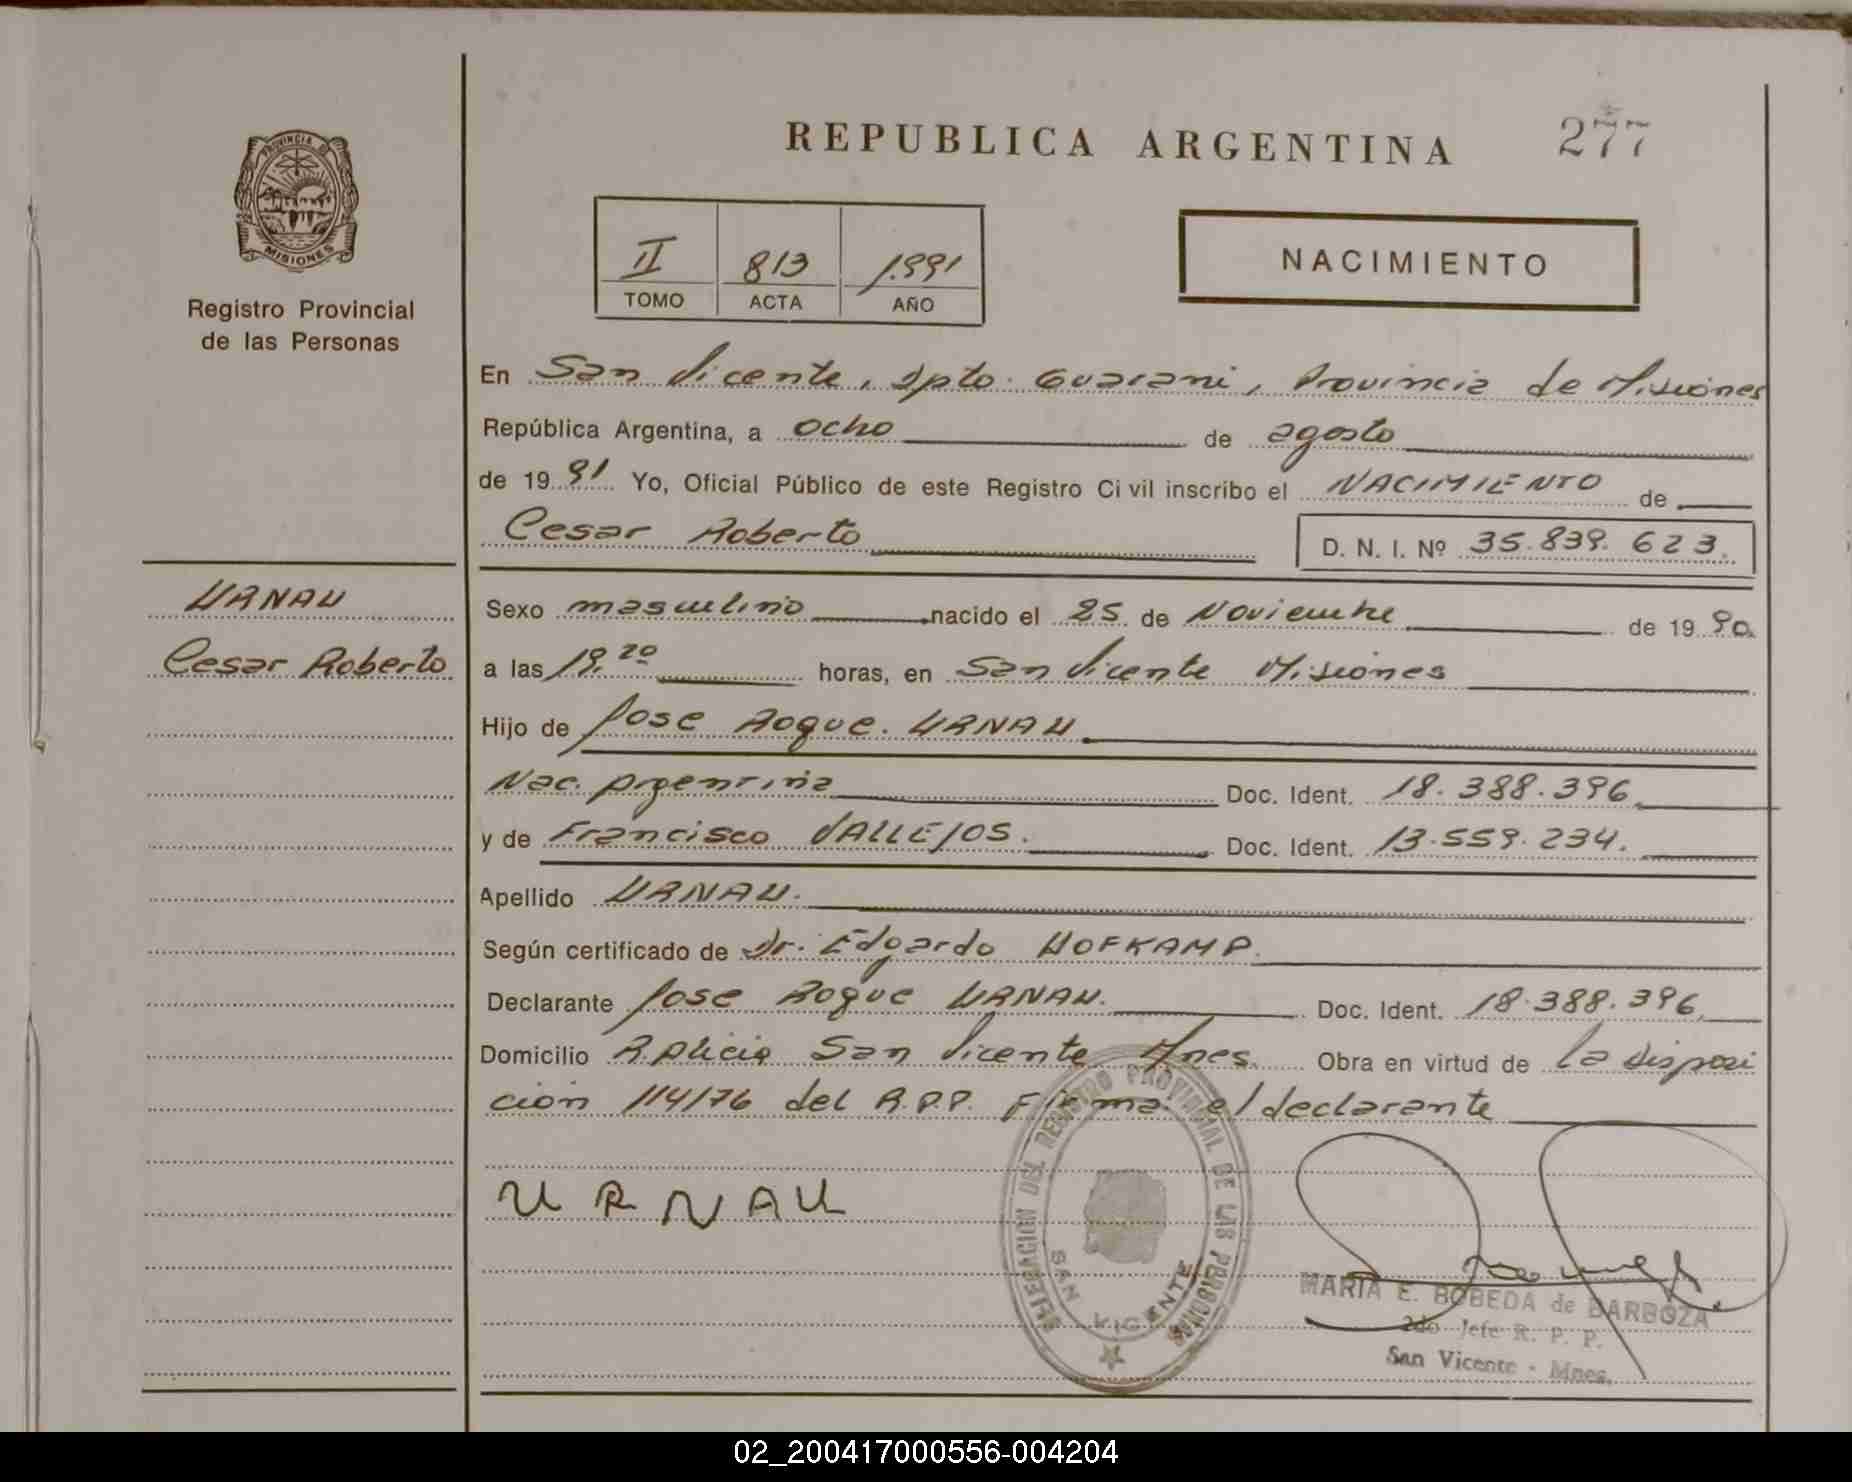 REPUBLICA ARGENTINA
277
PROVINCIA DE
MISIONES
Registro Provincial
de las Personas
II 813 1.991
TOMO ACTA AÑO
NACIMIENTO
En San Vicente, Dpto. Guarani, Provincia de Misiones
República Argentina, a ocho de agosto
de 1991 Yo, Oficial Público de este Registro Civil inscribo el NACIMIENTO de
Cesar Roberto D. N. I. Nº 35.839.623.
URNAU
Cesar Roberto
Sexo masculino nacido el 25 de Noviembre de 1990.
a las 19,20 horas, en San Vicente Misiones
Hijo de Jose Roque. URNAU.
Nac. Argentina Doc. Ident. 18.388.396.
y de Francisco VALLEJOS. Doc. Ident. 13.559.234.
Apellido URNAU.
Según certificado de Dr. Edgardo HOFKAMP.
Declarante Jose Roque URNAU. Doc. Ident. 18.388.396.
Domicilio San Vicente Mnes. Obra en virtud de la disposi
ción 114/76 del R.P.P. Firma el declarante
URNAU
DELEGACION DEL REGISTRO PROVINCIAL DE LAS PERSONAS
SAN VICENTE
MARIA E. BOBEDA de BARBOZA
2do Jefe R. P. P.
San Vicente - Mnes.
02_200417000556-004204